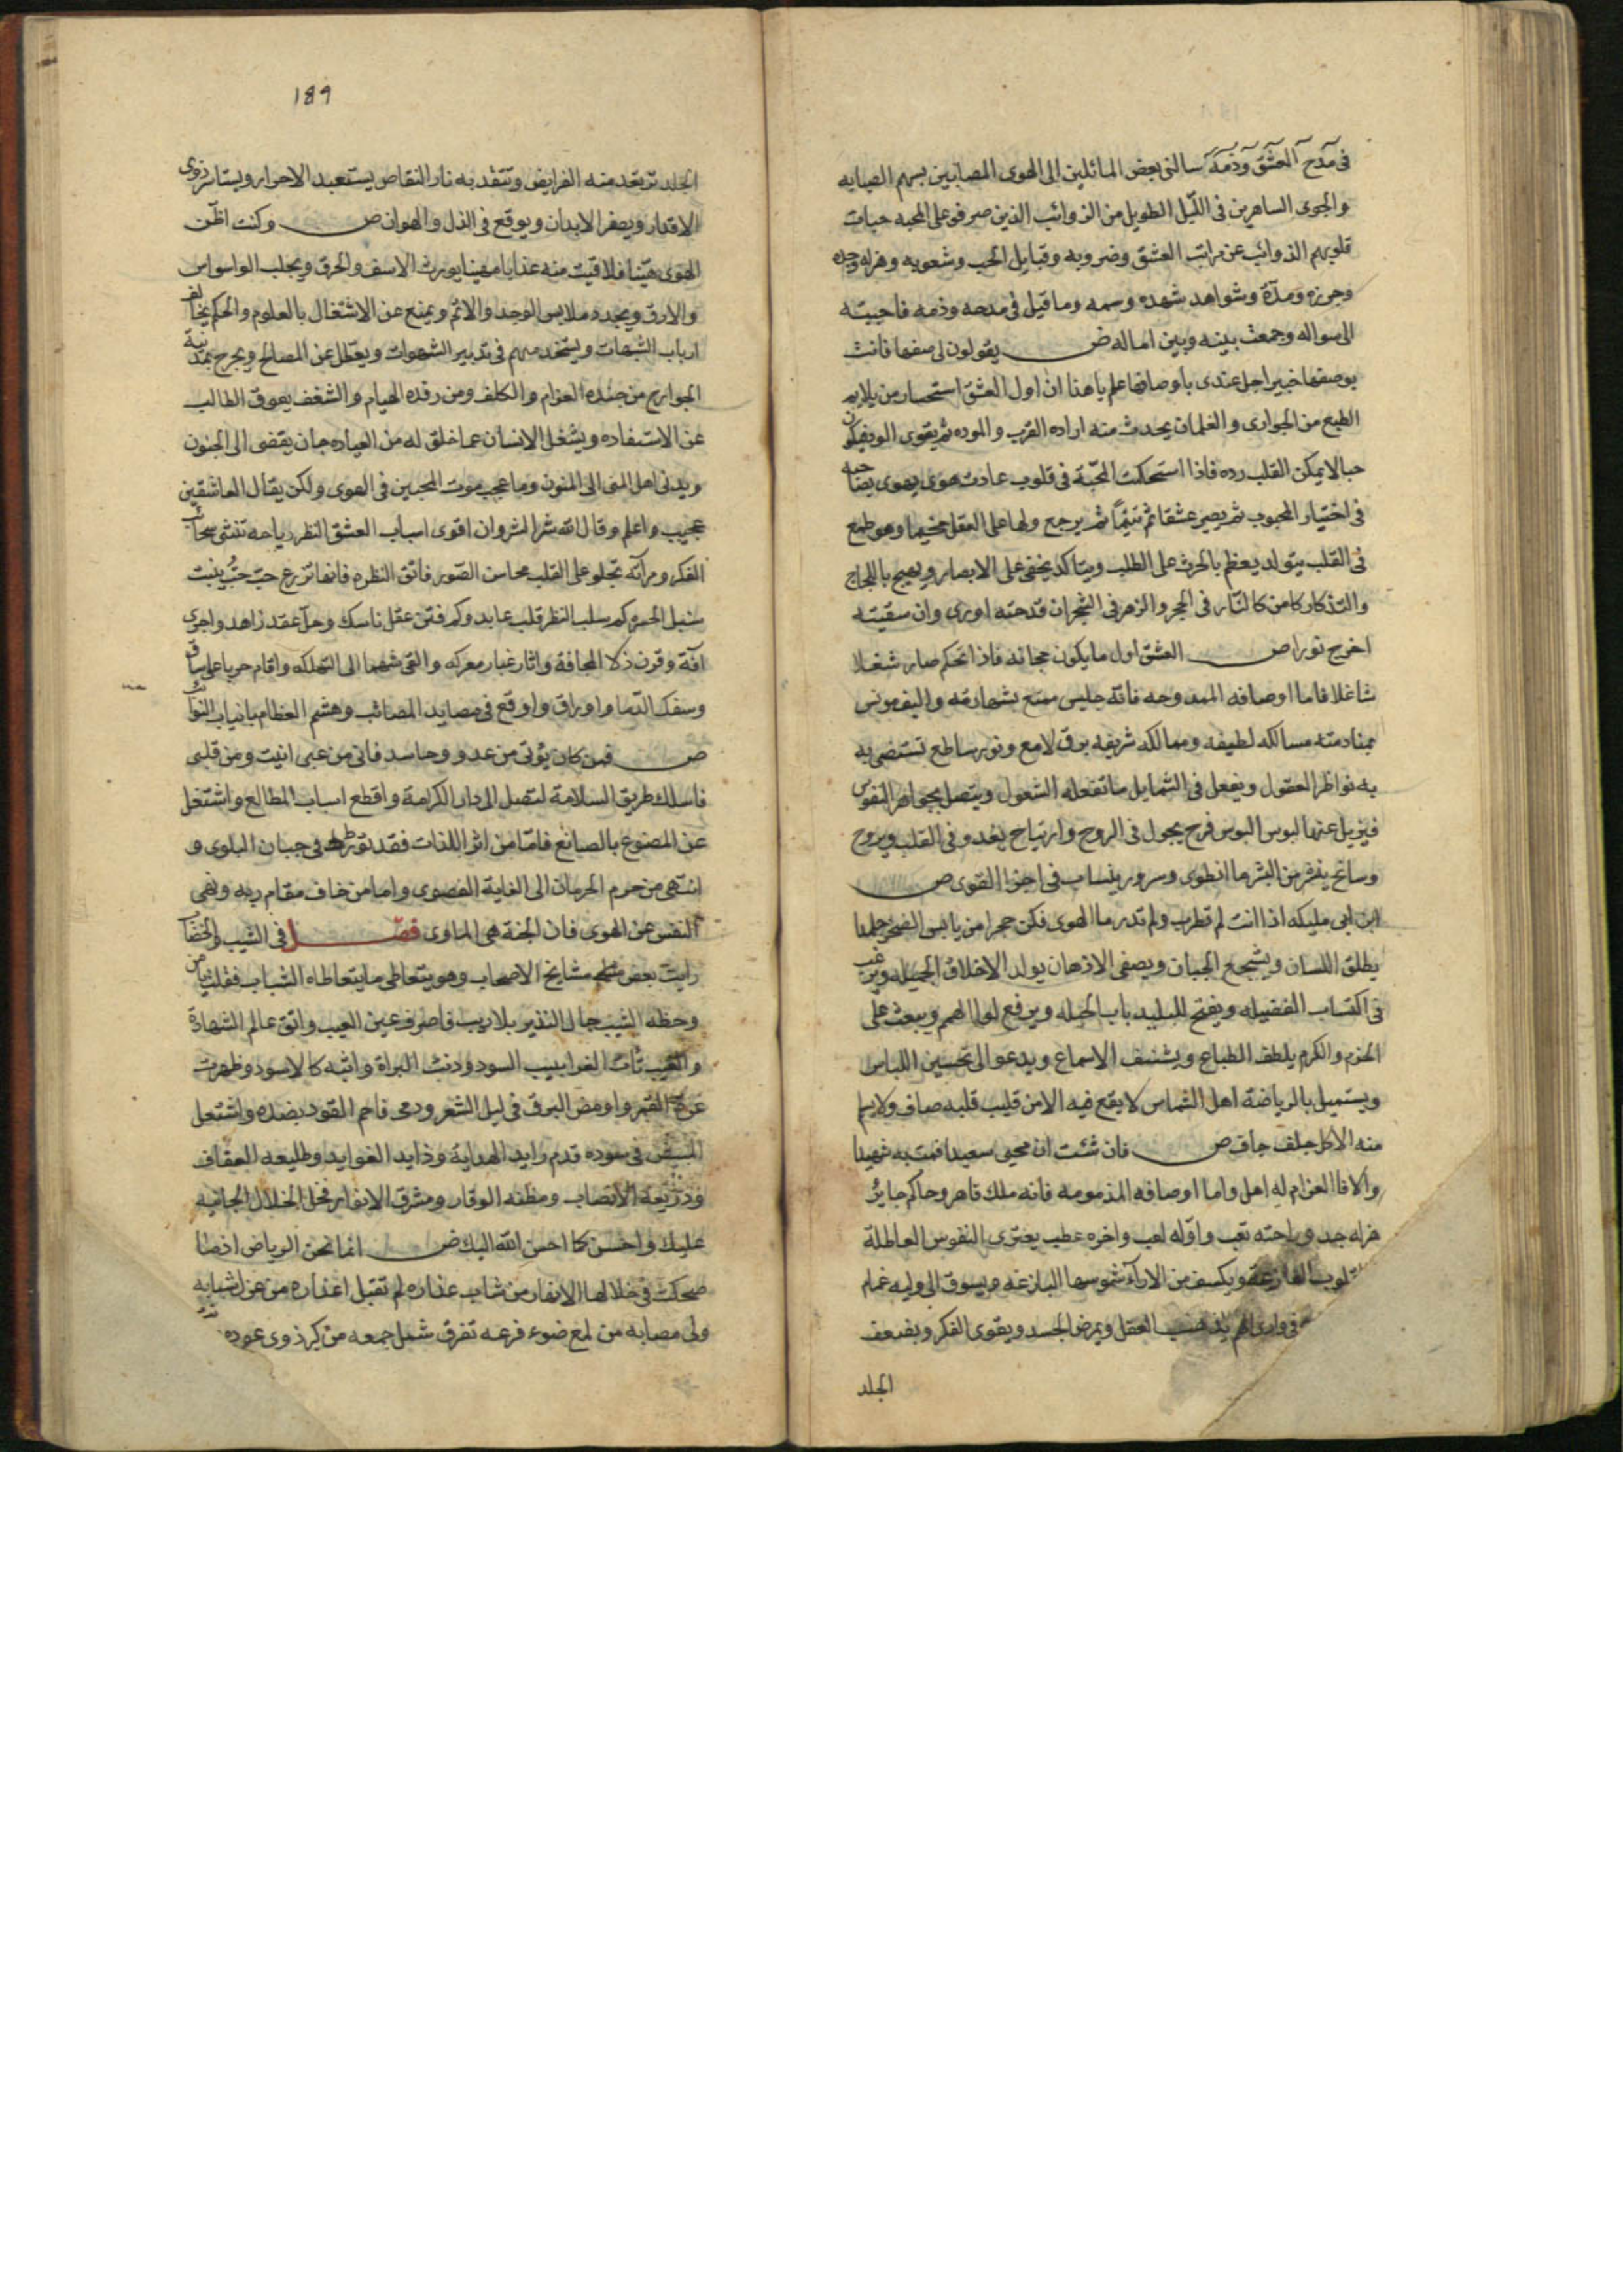 في مدح العشق وذمه سالني بعض المائلين الى الهوى المصابين بسهم الصبابه
والجوى الساهرين في الليل الطويل من الذوائب الذين صرفو على المحبه حبات
قلوبهم الذوائب عن مراتب العشق وضروبه وقبايل الحب وشعوبه وهزله وجده
وجزره ومده وشواهد شهده وسمه وما قيل في مدحه وذمه فاجبته
الى سواله وجمعت بينه وبين اماله ض يقولون لي صفها فانت
بوصفها خبير اجل عندي باوصافها علم يا هذا ان اول العشق استحسان من يلايم
الطبع من الجواري والغلمان يحدث منه اراده القرب والموده ثم يقوى الود فيكون
حبا لا يمكن القلب رده فاذا استحكت المحبة في قلوب عادت هوى يهوى بصاحبه
في اختيار المحبوب ثم يصير عشقا ثم تتيما ثم يرجع ولها على العقل مخيما وهو طبع
في القلب يتولد يعظم بالحرث على الطلب ويتاكد يخفى على الابصار ويهيج باللجاج
والتذكار كامن كالنار في الحجر والزهر في الشجر ان قدحته اورى وان سقيته
اخرج نورا ض العشق اول ما يكون مجانه فاذا تحكم صار شغلا
شاغلا فاما اوصافه الممدوحه فانه جليس ممتع بشهادته واليف مونس
بمنادمته مسالكه لطيفه وممالكه شريفه برق لامع ونور ساطع تستضي به
به نواظر العقول ويفعل في الشمايل ما تفعله الشمول ويتصل بجواهر النفوس
فيزيل عنها لبوس البوس فرح يجول في الروح وارتياح يغدو في القلب ويروح
وسانح ينشر من البشر ما انطوى وسرور ينساب في اجزا القوى ض
ابن ابي مليكه اذا انت لم تطرب ولم تدر ما الهوى فكن حجرا من يابس الصخر جلمدا
يطلق اللسان ويشجع الجبان ويصفي الاذهان يولد الاخلاق الجميله ويرغب
في اكتساب الفضيله ويفتح للبليد باب الحيله ويرفع لوا الهمم ويبعث على
الحزم والكرم يلطف الطباع ويشنف الاسماع ويدعو الى تحسين اللباس
ويستميل بالرياضة اهل الشماس لا يقع فيه الا من قليب قلبه صاف ولا يسلم
منه الا كل جلف جاف ض فان شئت ان تحيى سعيدا فمت به شهيدا
والا فالغرام له اهل واما اوصافه المذمومه فانه ملك قاهر وحاكم جاير
هزله جد وراحته تعب واوله لعب واخره عطب يعتري النفوس العاطلة
قلوب الفارغه ويكسف من الاراء شموسها البازغه ويسوق الى وليه غمام
العقل ويمرض الجسد ويقوى الفكر ويضعف
الجلد
189
الجلد ترتعد منه الفرايض وتتقد به نار النقاص يستعبد الاحرار ويستاسر ذوي
الاقدار ويصفر الابدان ويوقع في الذل والهوان ض وكنت اظن
الهوى هينا فلاقيت منه عذابا مهينا يورث الاسف والحرق ويجلب الوسواس
والارق ويجدد ملابس الوجد والالم ويمنع عن الاشتغال بالعلوم والحكم يخالف
ارباب الشبهات ويستخدمهم في تدبير الشهوات ويعطل عن المصالح ويجرح بمديه
الجوارح من جنده الغرام والكلف ومن رفده الهيام والشغف يعوق الطالب
عن الاستفاده ويشغل الانسان عما خلق له من العباده جان يفضى الى الجنون
ويدني اهل المنى الى المنون وما عجب موت المحبين في الهوى ولكن بقاء العاشقين
عجيب واعلم وقاك الله شر الشر وان اقوى اسباب العشق النظر رياحه تنشي سحائب
الفكر ومرآته تجلو على القلب محاسن الصور فاتق النظره فانها تزرع حب حب ينبت
سنبل الحسره كم سلب النظر قلب عابد وكم فتن عقل ناسك وحل عقد زاهد واجرى
آفة وقرن ذلا لمجافة واثار غبار معركه والقى شهما الى التهلكه واقام حربا على ساق
وسفك الدما واوراق واوقع في مصايد المصائب وهشم العظام بانياب النوائب
ض فمن كان يؤتى من عدو وحاسد فاني من عيني اتيت ومن قلبي
فاسلك طريق السلامة لتصل الى دار الكرامة واقطع اسباب المطامع واشتغل
عن المصنوع بالصانع فاما من اثر اللذات فقد تورط في جبان البلوى و
انتهى من حرم الحرمان الى الغاية القصوى واما من خاف مقام ربه ونهى
النفس عن الهوى فان الجنة هي الماوى فصل في الشيب والخضاب
رايت بعض مشايخ الاصحاب وهو يتعاطى ما يتعاطاه الشباب فقلت يا من
وخطه الشيب جاك النذير بلا ريب فاصرف عين العيب واتق عالم الشهادة
والغيب نات الغرابيب السود ودنت البزاة واثبه كالاسود وظهرت
غرة القمر واومض البرق في ليل الشعر ودعى فاحم الفود بضده واشتعل
المبيض في سوده قدم رايد الهداية وذايد الغوايه وطليعه العفاف
وذريعة الانصاب ومظنه الوقار ومشرق الانوار فخل الخلال الجانيه
عليك واحسن كما احسن الله اليك ض انما نحن الرياض اذا ما
ضحكت في خلالها الانفار من شاب عذاره لم تقبل اعذاره من عن اشبابه
ولى مصابه من لمع ضوء فرعه تفرق شمل جمعه من كبر ذوى عوده